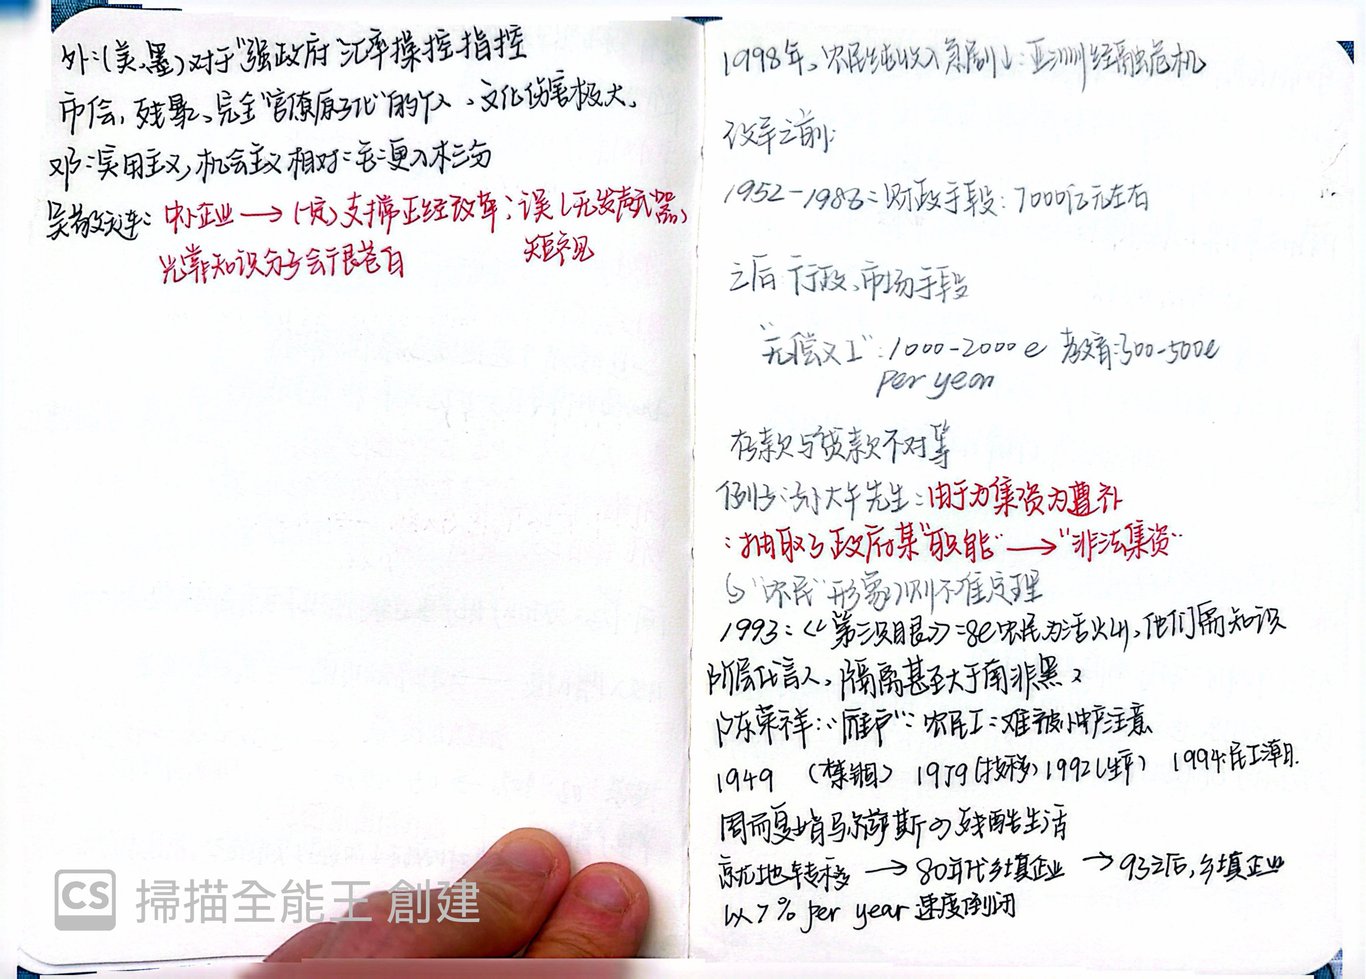 外:(美、墨)对于"强政府"汇率操控指控
市侩,残暴、完全"官僚原子化"的个人、文化伤害极大、
邓:实用主义,机会主义相对:毛:更入木三分
吴敬琏: 中小企业→(一定)支撑正经改革:误(无发声武器)
光靠知识分子会很苍白 短视
1998年,农民纯收入急剧↓:亚洲经融危机
改革之前:
1952-1988:财政手段:7000亿元左右
之后 行政、市场手段
"无偿义工":1000-2000e 教育:300-500e
per year
存款与贷款不对等
例子:孙大午先生:由于为集资为
:抽取了政府某"职能"→"非法集资"
"农民"形象 不 定理
1993:《第三只眼》:8e农民为活火山,他们需知识
阶层代言人,隔离甚至大于南非黑人
陈荣祥:"雁户":农民工:难被 注意
1949 1979(技移) 1992 1994:民工潮
周而复始马尔萨斯の残酷生活
就地转移→80年代乡镇企业→93之后,乡镇企业
以7% per year 速度倒闭
CS 掃描全能王 創建